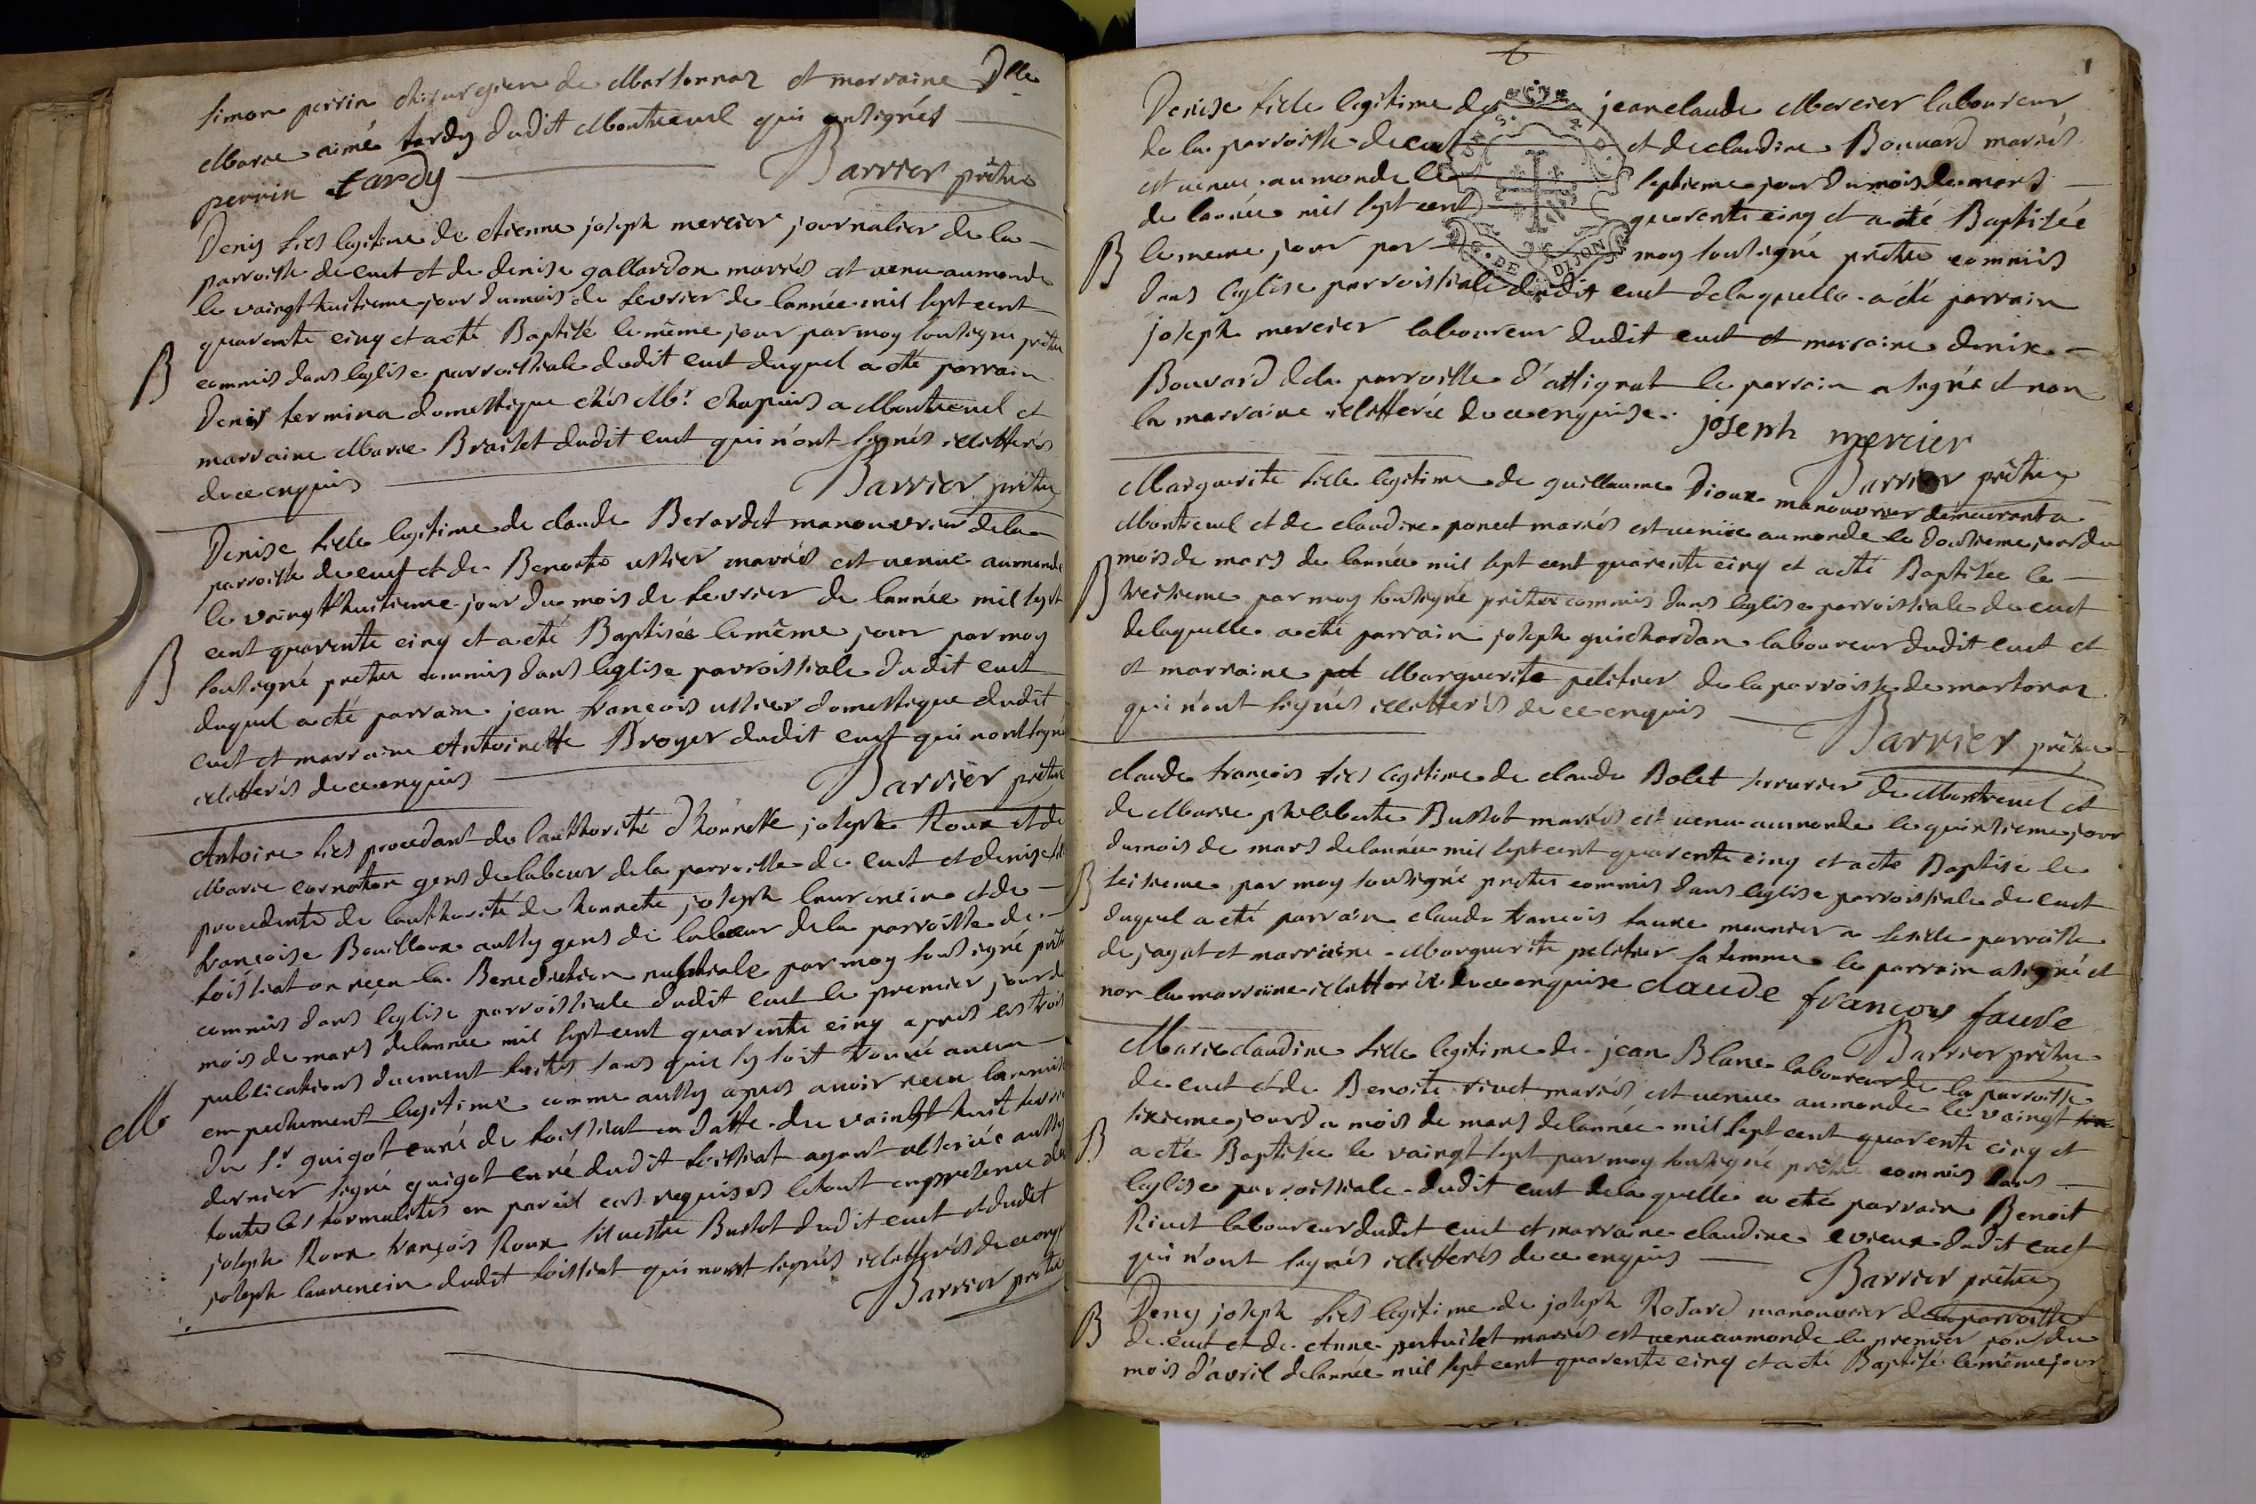 Simon perrin chirurgien de Martonnaz et marraine Dlle
Marie aimé tardy dudit Montreuil qui ont signés
perrin tardy Barrier prêtre
Denis fils legitime de etienne joseph mercier journalier de la
parroisse de cuet et de denise gallardon mariés est venu au monde
le vaingt huitieme jour du mois de fevrier de lannée mil sept cent
quarente cinq et a eté Baptisé le même jour par moy soussigné prêtre
B
commis dans leglise parroissiale dudit cuet duquel a eté parrain
Denis termina domestique chés Mr. chapuis a Montreuil et
marraine Marie Braiset dudit cuet qui n'ont signés illitterés
de ce enquis
Barrier prêtre
Denise fille legitime de claude Berardet manouvrier de la
parroisse de cuet et de Benoite ussier mariés est venue au monde
le vaingt huitieme jour du mois de fevrier de lannée mil sept
cent quarente cinq et a eté Baptisée le même jour par moy
B
soussigné prêtre commis dans leglise parroissiale dudit cuet
duquel a eté parrain jean françois ussier domestique dudit
cuet et marraine Antoinette Broyer dudit cuet qui n'ont signé
illitterés de ce enquis
Barrier prêtre
Antoine fils procedant de lauthorité d'honnette joseph Roux et de
Marie carnoton gens de labeur de la parroisse de cuet et denise fille
procedente de lauthorité de honnete joseph laurencin et de
françoise Bouilloux aussy gens de labeur de la parroisse de
foissiat on reçu la Benediction nuptiale par moy soussigné prêtre
commis dans leglise parroissiale dudit cuet le premier jour de
mois de mars de lannée mil sept cent quarente cinq apres les trois
publications duement faites sans quil sy soit trouvé aucun
M
empechement legitime comme aussy apres avoir reçu la remise
du Sr guigot curé de foissiat en datte du vaingt huit fevrier
dernier signé guigot curé dudit foissiat ayant observée aussy
toutes les formalités en pareil cas requises le tout en presence de
joseph Roux françois Roux silvestre Bustot dudit cuet et dudit
joseph laurencin dudit foissiat qui n'ont signés illitterés de ce enquis
Barrier prêtre
1
Denise fille legitime de jean claude Mercier laboureur
de la parroisse de cuet et de claudine Bouvard mariés
est venue au monde le septieme jour du mois de mars
de lannée mil sept cent quarente cinq et a eté Baptisée
B
le meme jour par moy soussigné prêtre commis
G. DE DIJON
dans leglise parroissiale dudit cuet de laquelle a eté parrain
joseph mercier laboureur dudit cuet et marraine denise
Bouvard de la parroisse d'attignat le parrain a signé et non
la marraine illitterée de ce enquise joseph mercier
Barrier prêtre
Marguerite fille legitime de guillaume Dioux manouvrier demeurent a
Montreuil et de claudine poncet mariés est venüe au monde le douzieme jour du
B
mois de mars de lannée mil sept cent quarente cinq et a eté Baptisée le
treisieme par moy soussigné prêtre commis dans leglise parroissiale de cuet
de laquelle a eté parrain joseph guichardan laboureur dudit cuet et
et marraine pel Marguerite pelitier de la parroisse de martonaz
qui n'ont signés illitterés de ce enquis
Barrier prêtre
claude françois fils legitime de claude Bolet serrurier de Montreuil et
de Marie philiberte Bustot mariés est venu au monde le quinsieme jour
du mois de mars de lannée mil sept cent quarente cinq et a eté Baptisé le
B
seisieme par moy soussigné prêtre commis dans leglise parroissiale de cuet
duquel a eté parrain claude françois faure meunier a seselle parroisse
de jayat et marraine Marguerite peletier sa femme le parrain a signé et
non la marraine illitterée de ce enquise claude françois faure
Barrier prêtre
Marie claudine fille legitime de jean Blanc laboureur de la parroisse
de cuet et de Benoite rivet mariés est venue au monde le vaingt
sixieme jour du mois de mars de lannée mil sept cent quarente cinq et
B
a eté Baptisée le vaingt sept par moy soussigné prêtre commis dans
leglise parroissiale dudit cuet de la quelle a eté parrain Benoit
Rivet laboureur dudit cuet et marraine claudine evieux dudit cuet
qui n'ont signés illitterés de ce enquis
Barrier prêtre
B
Deny joseph fils legitime de joseph Rosard manouvrier de la parroisse
de cuet et de Anne pertuiset mariés est venu au monde le premier jour du
mois d'avril de lannée mil sept cent quarente cinq et a eté Baptisé le même jour